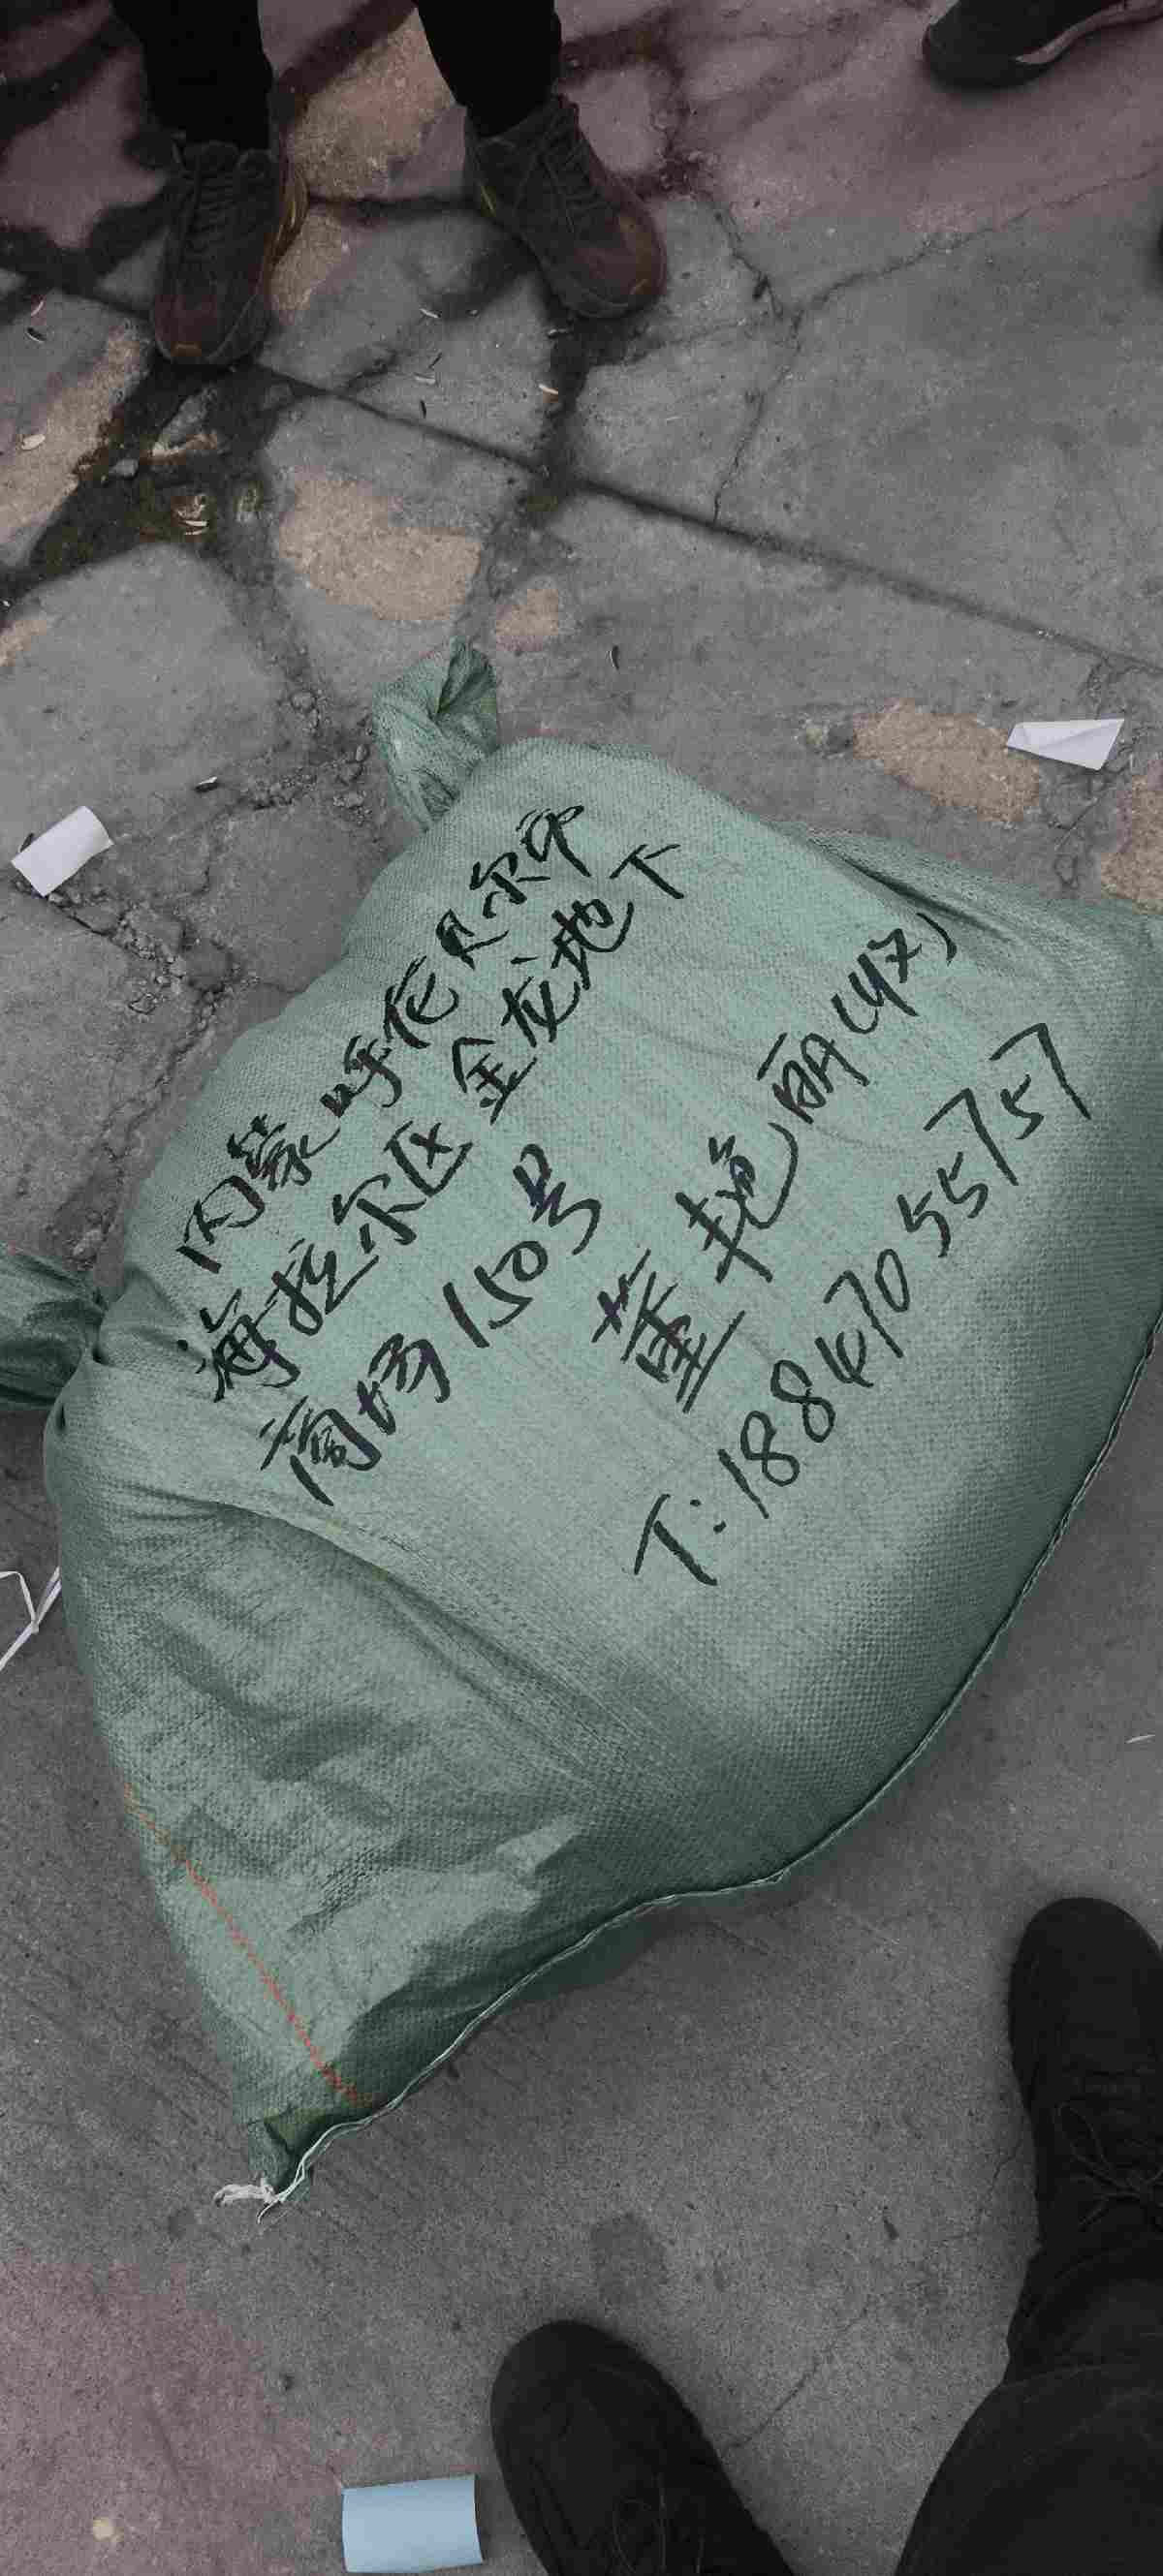 内蒙呼伦贝尔市
海拉尔区金龙地下
商场150号
董艳丽(收)
T:18847055757